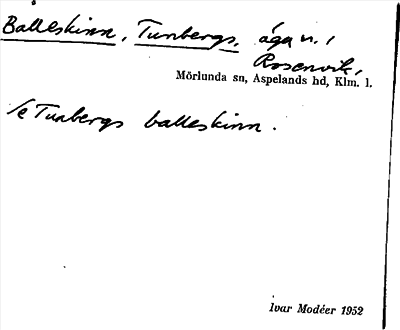 Balleskinn, Tunbergs, ägan. i
Rosenvik,
Mörlunda sn, Aspelands hd, Klm. l.
se Tunbergs balleskinn.
Ivar Modéer 1952